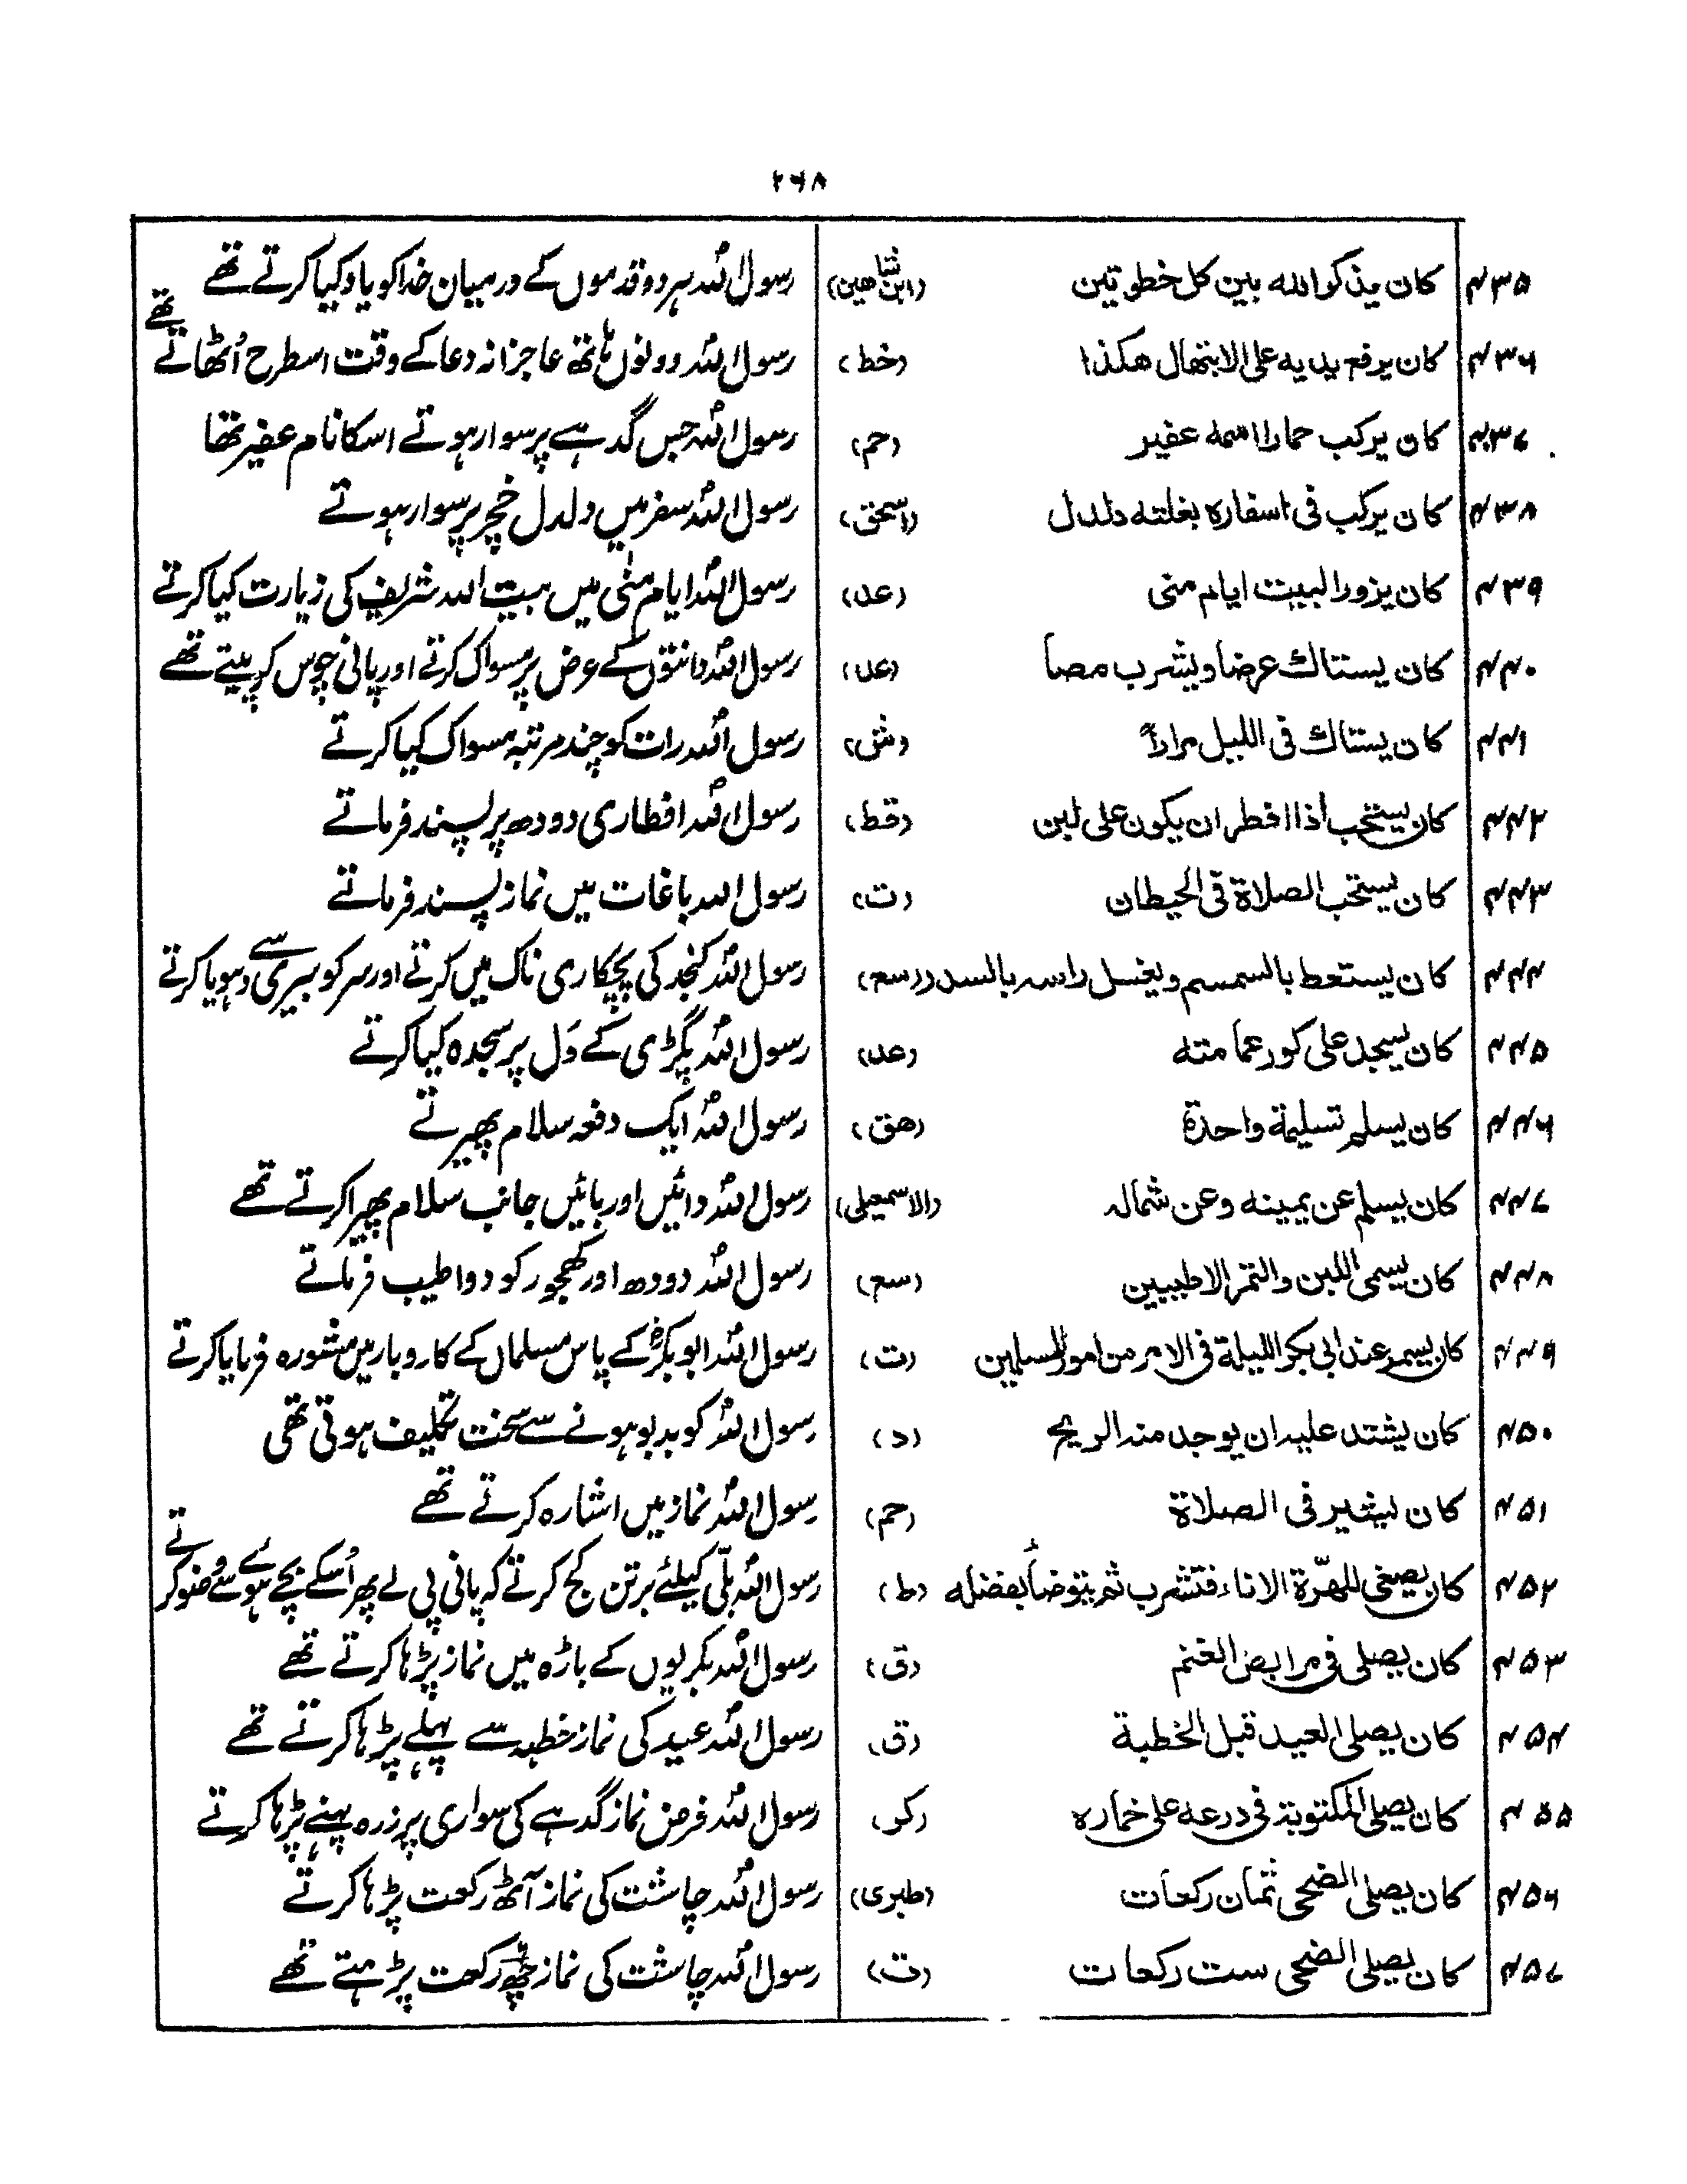 ۲۶۸
۴۳۵ کان یذکر الله بین کل خطوتین (ابن شاهین) رسول اللہ ہر دو قدموں کے درمیان خدا کو یاد کیا کرتے تھے
۴۳۶ کان یرفع یدیه علی الابتهال هکذا (خط) رسول اللہ دونوں ہاتھ عاجزانہ دعا کے وقت اسطرح اُٹھاتے تھے
۴۳۷ کان یرکب حمارا اسمه عفیر (حم) رسول اللہ جس گدہے پر سوار ہوتے اسکا نام عفیر تھا
۴۳۸ کان یرکب فی اسفاره بغلته دلدل (اسحق) رسول اللہ سفر میں دلدل خچر پر سوار ہوتے
۴۳۹ کان یزور البیت ایام منی (عد) رسول اللہ ایام منٰی میں بیت اللہ شریف کی زیارت کیا کرتے
۴۴۰ کان یستاک عرضا ویشرب مصاً (عد) رسول اللہ دانتوں کے عرض پر مسواک کرتے اور پانی چوس کر پیتے تھے
۴۴۱ کان یستاک فی اللیل مراراً (ش) رسول اللہ رات کو چند مرتبہ مسواک کیا کرتے
۴۴۲ کان یستحب اذا افطر ان یکون علی لبن (قط) رسول اللہ افطاری دودھ پر پسند فرماتے
۴۴۳ کان یستحب الصلاة فی الحیطان (ت) رسول اللہ باغات میں نماز پسند فرماتے
۴۴۴ کان یستعط بالسمسم ویغسل راسه بالسدر (سع) رسول اللہ کنجد کی پچکاری ناک میں کرتے اور سر کو بیری سے دہویا کرتے
۴۴۵ کان یسجد علی کور عمامته (عد) رسول اللہ پگڑی کے وَل پر سجدہ کیا کرتے
۴۴۶ کان یسلم تسلیمة واحدة (هق) رسول اللہ ایک دفعہ سلام پھیرتے
۴۴۷ کان یسلم عن یمینه وعن شماله (الاسمعیلی) رسول اللہ دائیں اور بائیں جانب سلام پھیرا کرتے تھے
۴۴۸ کان یسمی اللبن والتمر الاطیبین (سع) رسول اللہ دودھ اور کھجور کو دو اطیب فرماتے
۴۴۹ کان یسمر عند ابی بکر اللیلة فی الامر من امور المسلمین (ت) رسول اللہ ابوبکرؓ کے پاس مسلماں کے کاروبار میں مشورہ فرمایا کرتے
۴۵۰ کان یشتد علیه ان یوجد منه الریح (د) رسول اللہ کو بدبو ہونے سے سخت تکلیف ہوتی تھی
۴۵۱ کان یشیر فی الصلاة (حم) رسول اللہ نماز میں اشارہ کرتے تھے
۴۵۲ کان یصغی للهرّة الاناء فتشرب ثم یتوضأ بفضله (ط) رسول اللہ بلّی کیلئے برتن کج کرتے کہ پانی پی لے پھر اُسکے بچے ہوئے سے وضو کرتے
۴۵۳ کان یصلی فی مرابض الغنم (ق) رسول اللہ بکریوں کے باڑہ میں نماز پڑہا کرتے تھے
۴۵۴ کان یصلی العید قبل الخطبة (ق) رسول اللہ عید کی نماز خطبہ سے پہلے پڑہا کرتے تھے
۴۵۵ کان یصلی المکتوبة فی درعه علی خماره (کر) رسول اللہ فرض نماز گدہے کی سواری پر زرہ پہنے پڑہا کرتے
۴۵۶ کان یصلی الضحی ثمان رکعات (طبری) رسول اللہ چاشت کی نماز آٹھ رکعت پڑہا کرتے
۴۵۷ کان یصلی الضحی ست رکعات (ت) رسول اللہ چاشت کی نماز چھ رکعت پڑہتے تھے